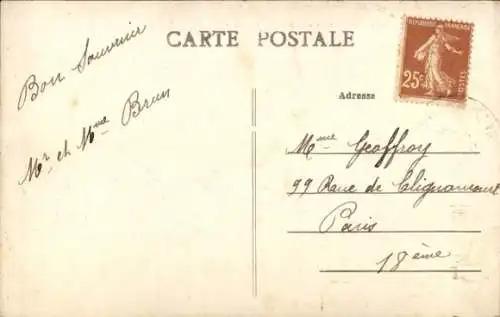 CARTE POSTALE
REPUBLIQUE FRANÇAISE
25c
POSTES
Bon Souvenir
Mr et Mme Brun
Adresse
Mme Geoffroy
99 Rue de Clignancourt
Paris
18ème